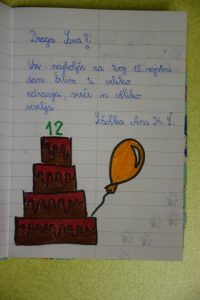 Draga Lara!
Vse najboljše za tvoj 12. rojstni
dan. Želim ti veliko
zdravja, sreče in veliko
veselja.
Sošolka Ana K. Š.
12